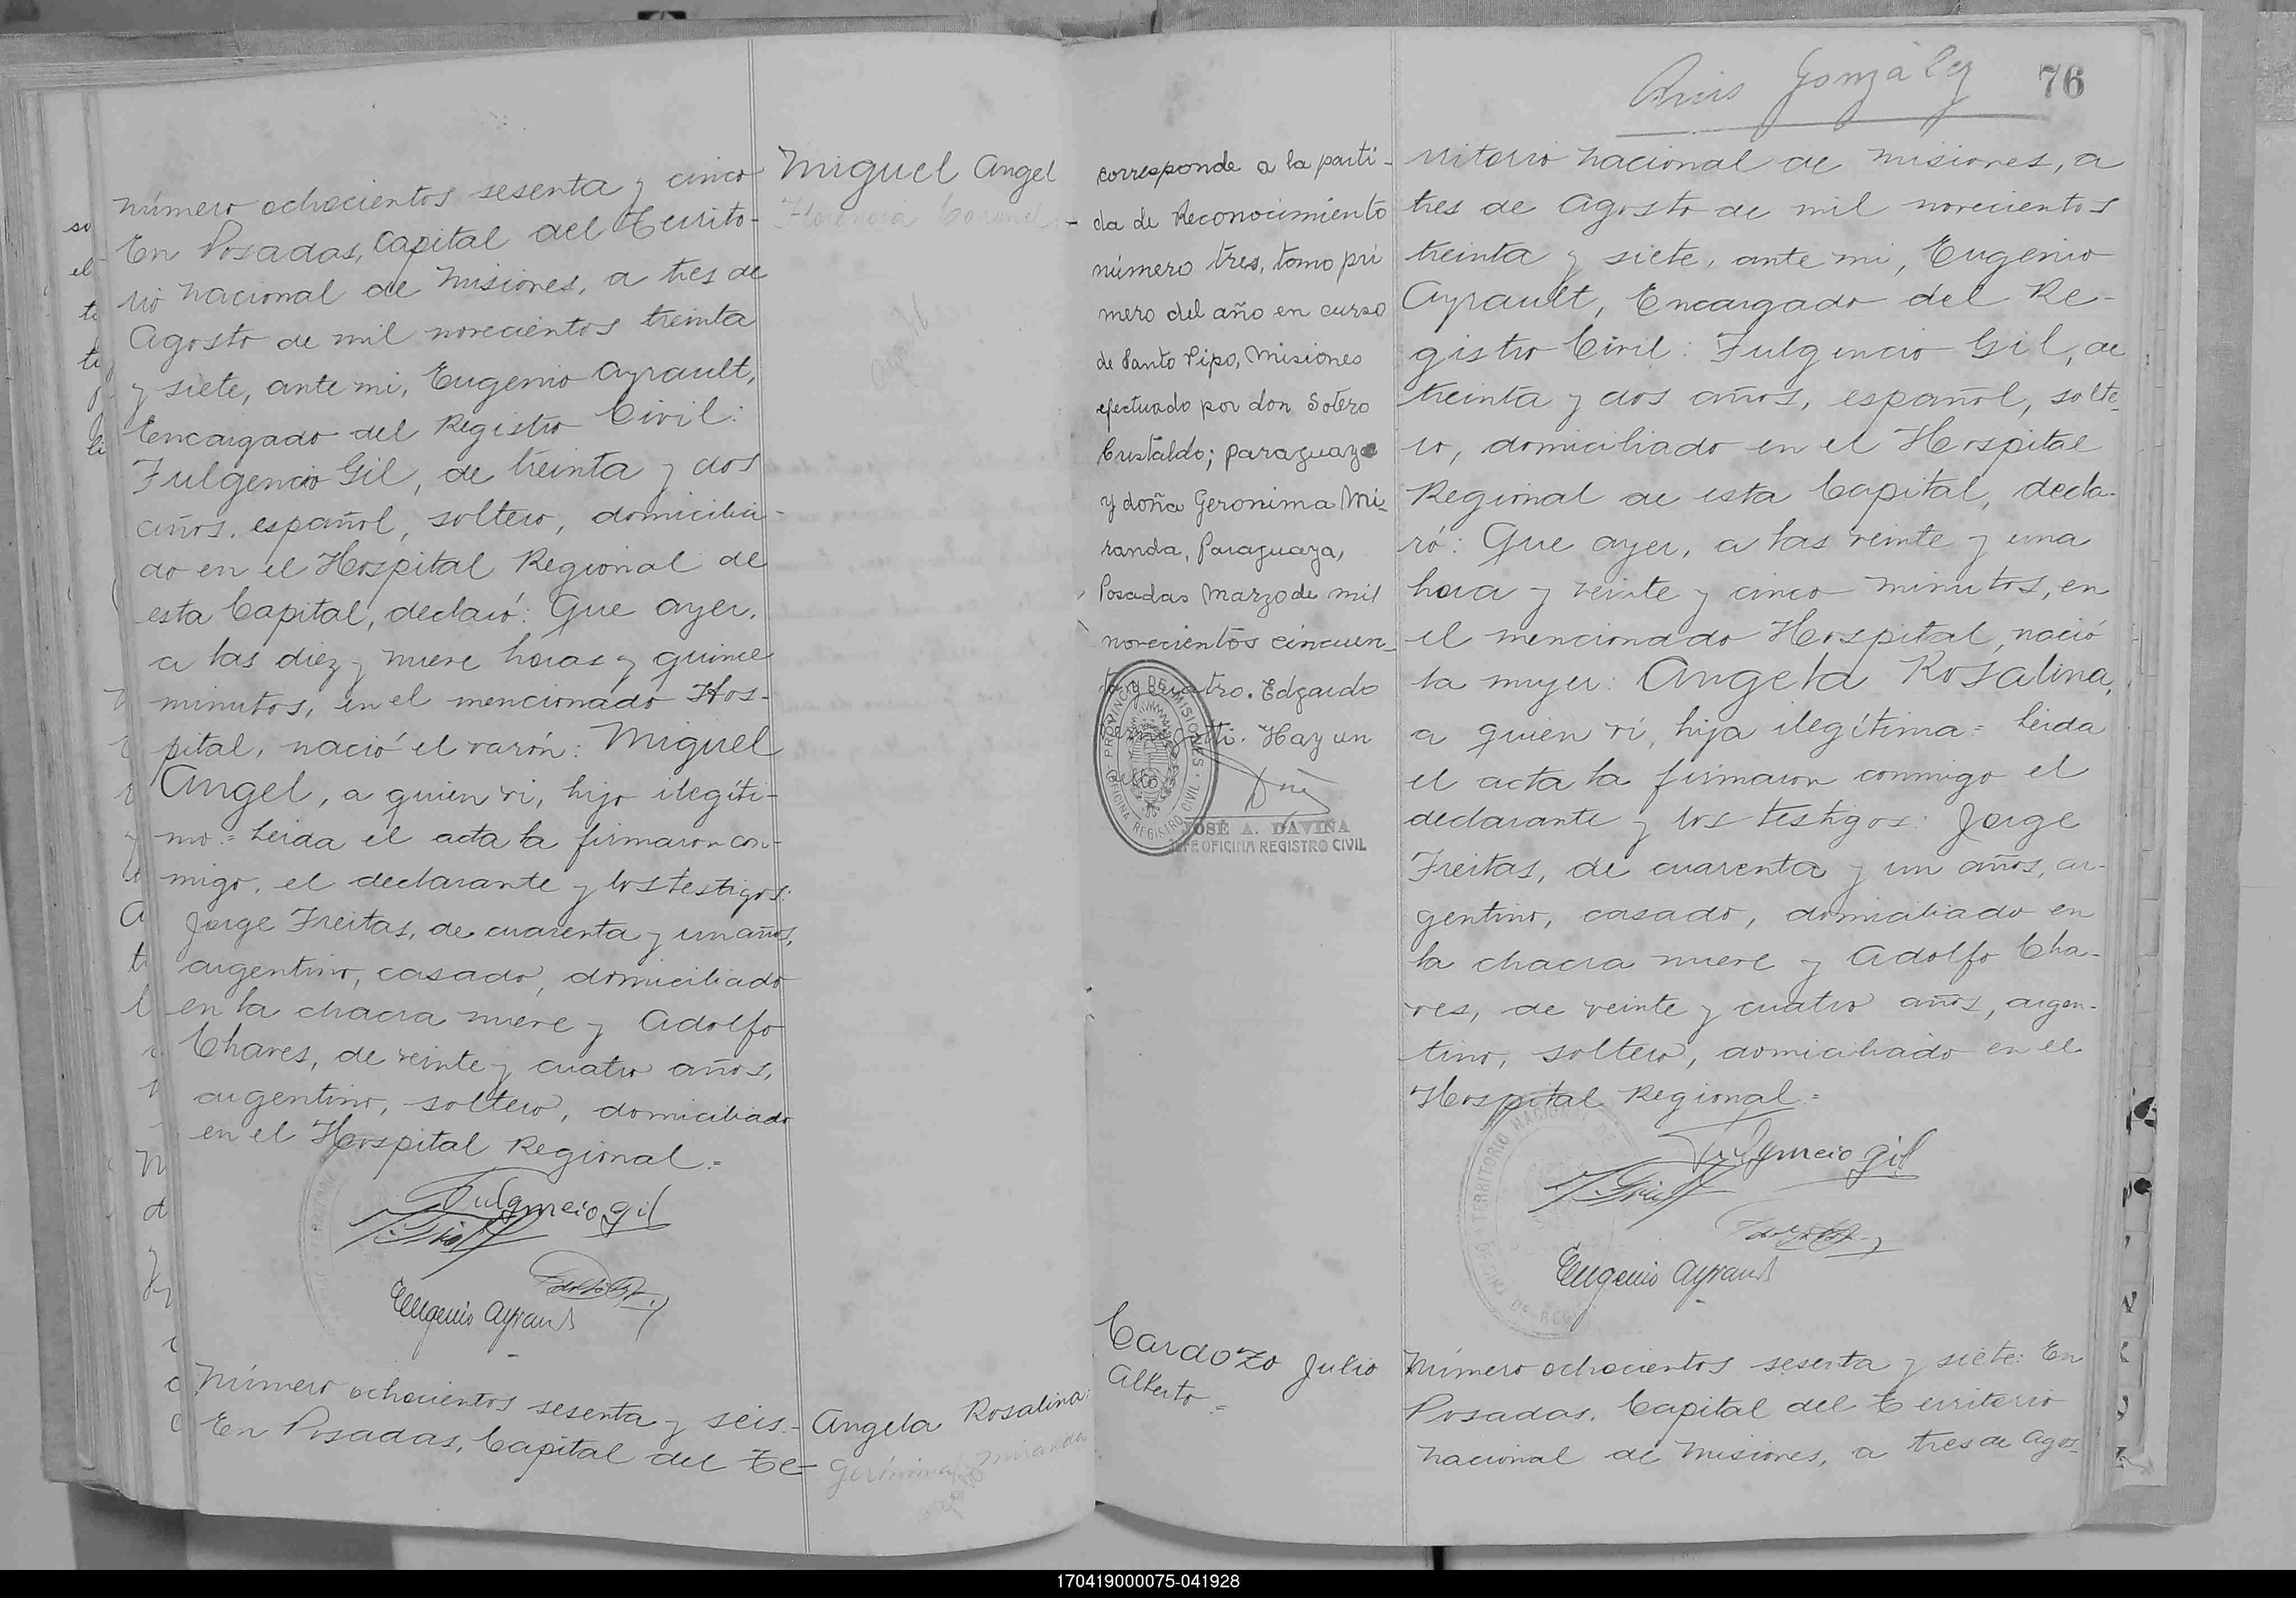 número ochocientos sesenta y cinco
En Posadas, Capital del Territo-
rio nacional de Misiones, a tres de
Agosto de mil novecientos treinta
y siete, ante mi, Eugenio Ayrault,
Encargado del Registro Civil:
Fulgencio Gil, de treinta y dos
años, español, soltero, domicilia-
do en el Hospital Regional de
esta Capital, declaró: Que ayer,
a las diez y nueve horas y quince
minutos, en el mencionado Hos-
pital, nació el varón: Miguel
Angel, a quien vi, hijo ilegíti-
mo = Leida el acta la firmaron con-
migo, el declarante y los testigos:
Jorge Freitas, de cuarenta y un años,
argentino, casado, domiciliado
en la chacra nueve y Adolfo
Chaves, de veinte y cuatro años,
argentino, soltero, domiciliado
en el Hospital Regional.=
Fulgencio Gil
Eugenio Ayrault
Miguel Angel
Florencia Coronel
Número ochocientos sesenta y seis.-
En Posadas, Capital del Te-
Angela Rosalina
Gerónima Miranda
González
76
corresponde a la parti-
da de Reconocimiento
número tres, tomo pri
mero del año en curso
de Santo Pipo, Misiones
efectuado por don Sotero
Cristaldo; paraguayo
y doña Geronima Mi-
randa, Paraguaya,
Posadas Marzo de mil
novecientos cincuen-
ta y cuatro. Edgardo
Hay un
PROVINCIA DE MISIONES
OFICINA REGISTRO CIVIL
JOSÉ A. DAVIÑA
JEFE OFICINA REGISTRO CIVIL
rritorio nacional de Misiones, a
tres de Agosto de mil novecientos
treinta y siete, ante mi, Eugenio
Ayrault, Encargado del Re-
gistro Civil: Fulgencio Gil, de
treinta y dos años, español, solte-
ro, domiciliado en el Hospital
Regional de esta Capital, decla-
ró: Que ayer, a las veinte y una
hora y veinte y cinco minutos, en
el mencionado Hospital, nació
la mujer: Angela Rosalina,
a quien vi, hija ilegítima = Leida
el acta la firmaron conmigo el
declarante y los testigos: Jorge
Freitas, de cuarenta y un años, ar-
gentino, casado, domiciliado en
la chacra nueve y Adolfo Cha-
ves, de veinte y cuatro años, argen-
tino, soltero, domiciliado en el
Hospital Regional.=
Fulgencio Gil
Eugenio Ayrault
Cardozo Julio
Alberto =
Número ochocientos sesenta y siete: En
Posadas, Capital del Territorio
nacional de Misiones, a tres de Agos-
170419000075-041928